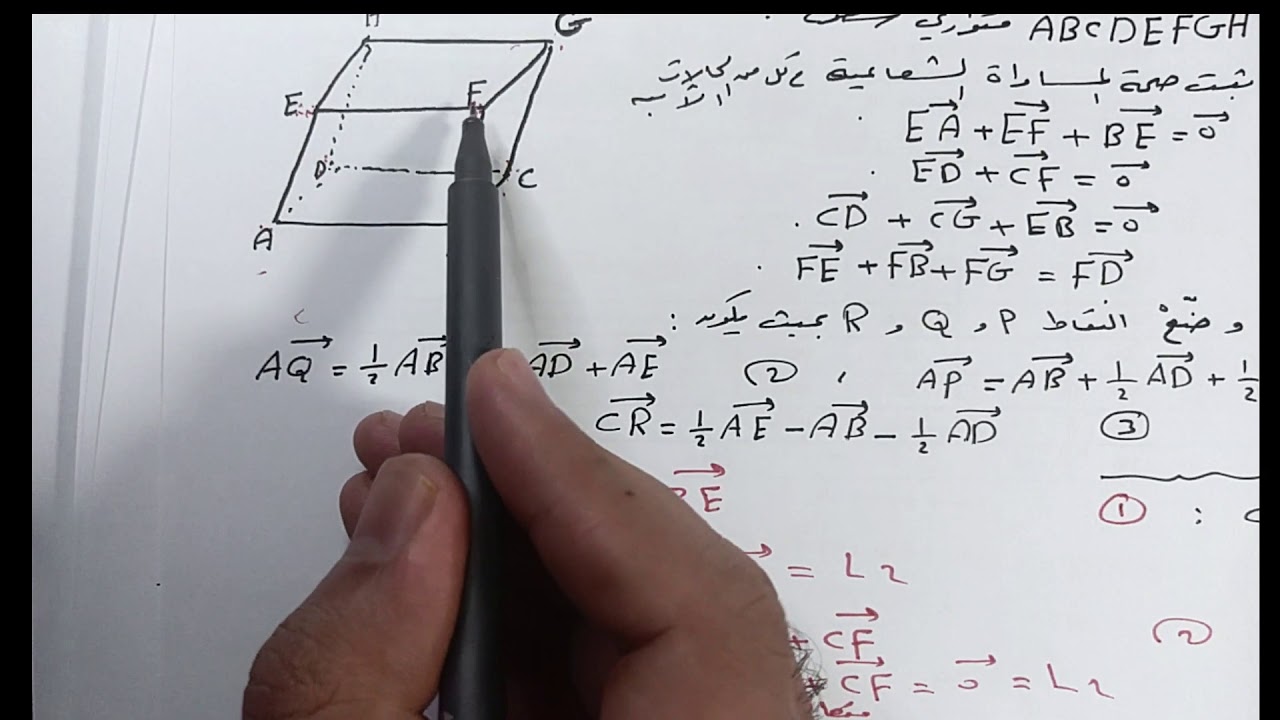 ABCDEFGH متوازي
أثبت صحة المساواة الشعاعية في كل من الحالات الآتية
EA + EF + BE = 0
ED + CF = 0
CD + CG + EB = 0
FE + FB + FG = FD
وضّع النقاط P و Q و R بحيث يكون :
AP = AB + 1/2 AD + 1/2
② ،
AQ = 1/2 AB AD + AE
③ CR = 1/2 AE - AB - 1/2 AD
① :
BE
= L2
② + CF
+ CF = 0 = L2
H
G
E
F
D
C
A